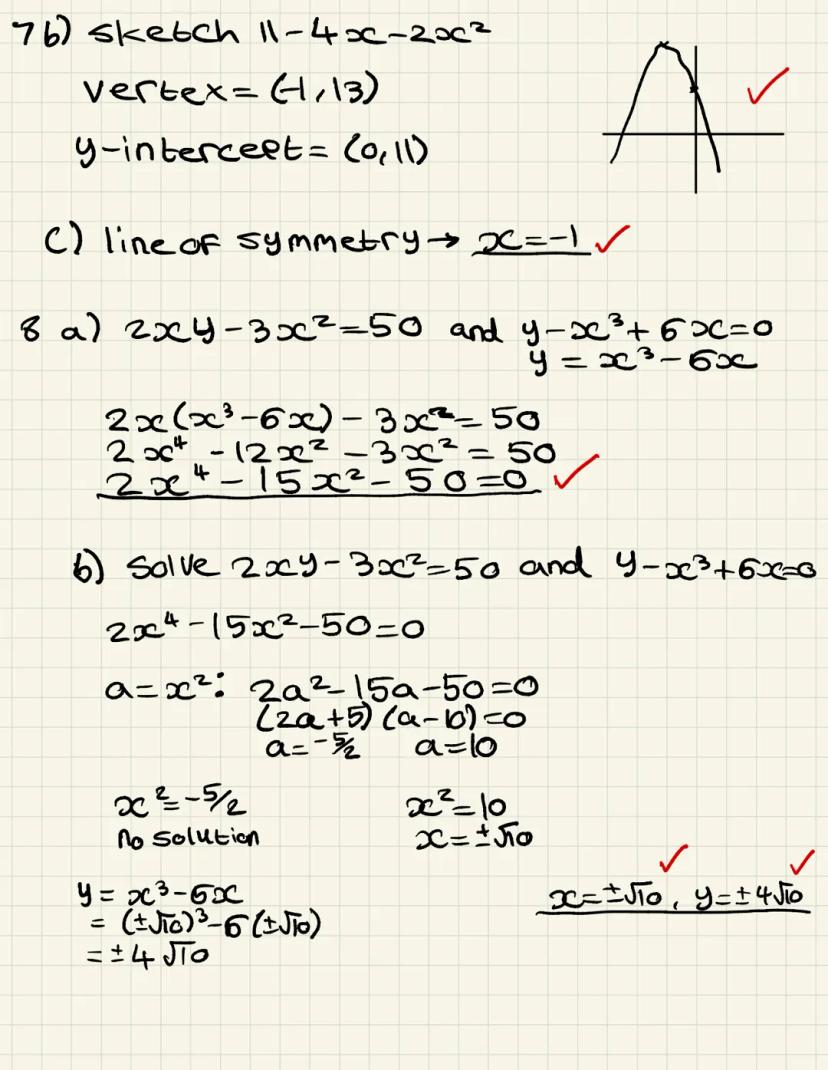 7 b) sketch 11-4x-2x²
vertex = (-1,13)
y-intercept = (0,11)
c) line of symmetry → x=-1
8 a) 2xy-3x²=50 and y-x³+6x=0
y = x³-6x
2x(x³-6x) - 3x² = 50
2x⁴ - 12x² - 3x² = 50
2x⁴ - 15x² - 50=0
b) Solve 2xy-3x²=50 and y-x³+6x=0
2x⁴-15x²-50=0
a=x²: 2a²-15a-50=0
(2a+5)(a-10)=0
a=-5/2 a=10
x²=-5/2 x²=10
no solution x=±√10
y = x³-6x x=±√10, y=±4√10
= (±√10)³-6(±√10)
= ±4√10